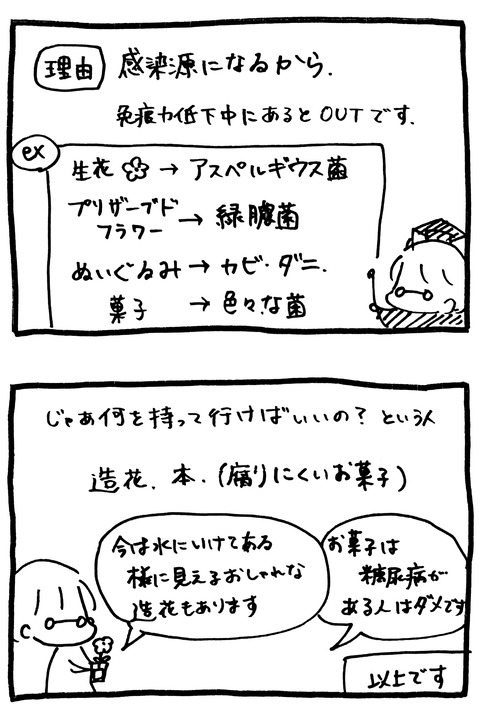 理由 感染源になるから.
免疫力低下中にあるとOUTです.
ex
生花 → アスペルギウス菌
プリザーブド
フラワー → 緑膿菌
ぬいぐるみ → カビ・ダニ.
菓子 → 色々な菌
じゃあ何を持って行けばいいの? という人
造花. 本. (腐りにくいお菓子)
今は水にいけてある
様に見えるおしゃれな
造花もあります
お菓子は
糖尿病が
ある人はダメです
以上です